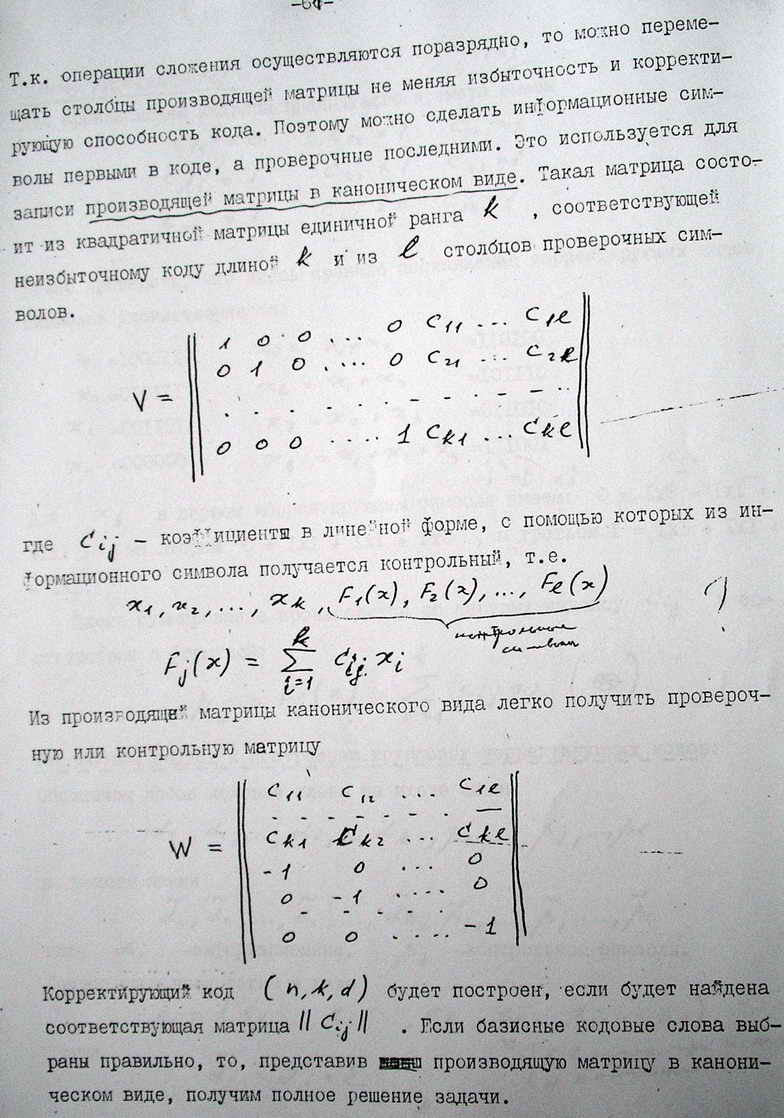 -64-
Т.к. операции сложения осуществляются поразрядно, то можно переме-
щать столбцы производящей матрицы не меняя избыточность и корректи-
рующую способность кода. Поэтому можно сделать информационные сим-
волы первыми в коде, а проверочные последними. Это используется для
записи производящей матрицы в каноническом виде. Такая матрица состо-
ит из квадратичной матрицы единичной ранга k , соответствующей
неизбыточному коду длиной k и из l столбцов проверочных сим-
волов.
1 0 0 ... 0 C11 ... C1l
0 1 0 .... 0 C21 ... C2l
V =
. . . . . - - - - - ..
0 0 0 .... 1 Ck1 ... Ckl
где Cij – коэффициенты в линейной форме, с помощью которых из ин-
формационного символа получается контрольный, т.е.
x1, x2, ..., xk, F1(x), F2(x), ..., Fl(x)
контрольные
символы
Fj(x) = ∑ k i=1 Cij xi
Из производящей матрицы канонического вида легко получить провероч-
ную или контрольную матрицу
C11 C12 ... C1l
- - - - - - - -
Ck1 Ck2 ... Ckl
W =
-1 0 ... 0
0 -1 .... 0
- - - - - - -
0 0 .... -1
Корректирующий код (n,k,d) будет построен, если будет найдена
соответствующая матрица ||Cij|| . Если базисные кодовые слова выб-
раны правильно, то, представив производящую матрицу в канони-
ческом виде, получим полное решение задачи.